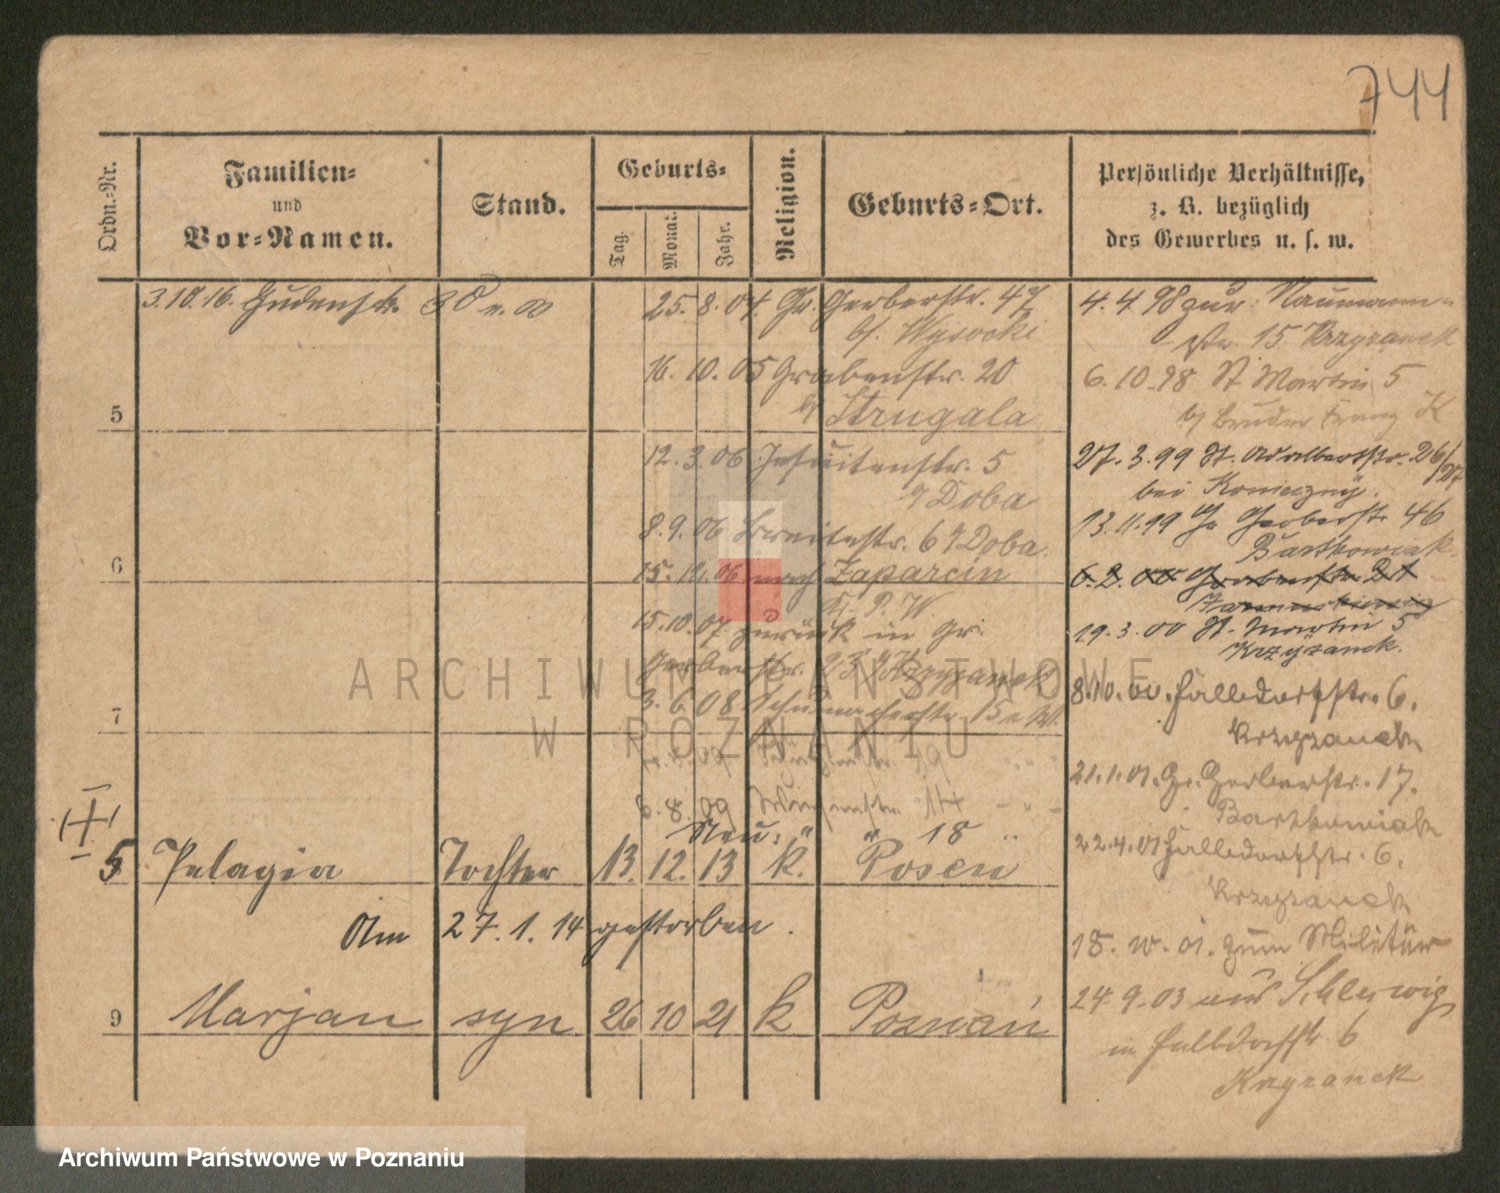 744
Ordn.-Nr.
Familien-
und
Vor-Namen.
Stand.
Geburts-
Tag.
Monat.
Jahr.
Religion.
Geburts-Ort.
Persönliche Verhältnisse,
z. B. bezüglich
des Gewerbes u. s. w.
3.10.16.
25.8.04. Gr. Gerberstr. 47
b/. Wysocki
16.10.05 Grabenstr. 20
b/ Strugala
12.3.06 Jesuitenstr. 5
b/ Doba
8.9.06 Breitestr. 6 b/ Doba.
15.11.06 nach Zaparcin
Kr. P. W.
15.10.07. zurück in Gr.
Gerberstr. 23 b/ Krzyzanek
3.6.08 Schumacherstr. 15
8.09 14
Neu: " " 18 "
4.4.98 zur: Naumann-
Str. 15 Krzyzanek
6.10.98 St Martin 5
b/ Bruder Franz K
27.3.99 St. Adalbertstr. 26/27
bei Konieczny.
13.11.99 Gr Gerberstr 46
Bartkowiak.
19.3.00 St. Martin 5
Krzyzanek.
8.10.00. Halldorfstr. 6.
Krzyzanek
21.1.01. Gr. Gerberstr. 17.
Bartkowiak
22.4.01 Halldorfstr. 6.
Krzyzanek
18.10.01. zum Militär
24.9.03 aus Schleswig
in Halldorfstr. 6
Krzyzanek
5
6
7
5 Pelagia Tochter 13. 12. 13 k. Posen
Am 27.1.14 gestorben.
9 Marjan syn 26 10 21 k Poznań
ARCHIWUM PAŃSTWOWE
W POZNANIU
Archiwum Państwowe w Poznaniu